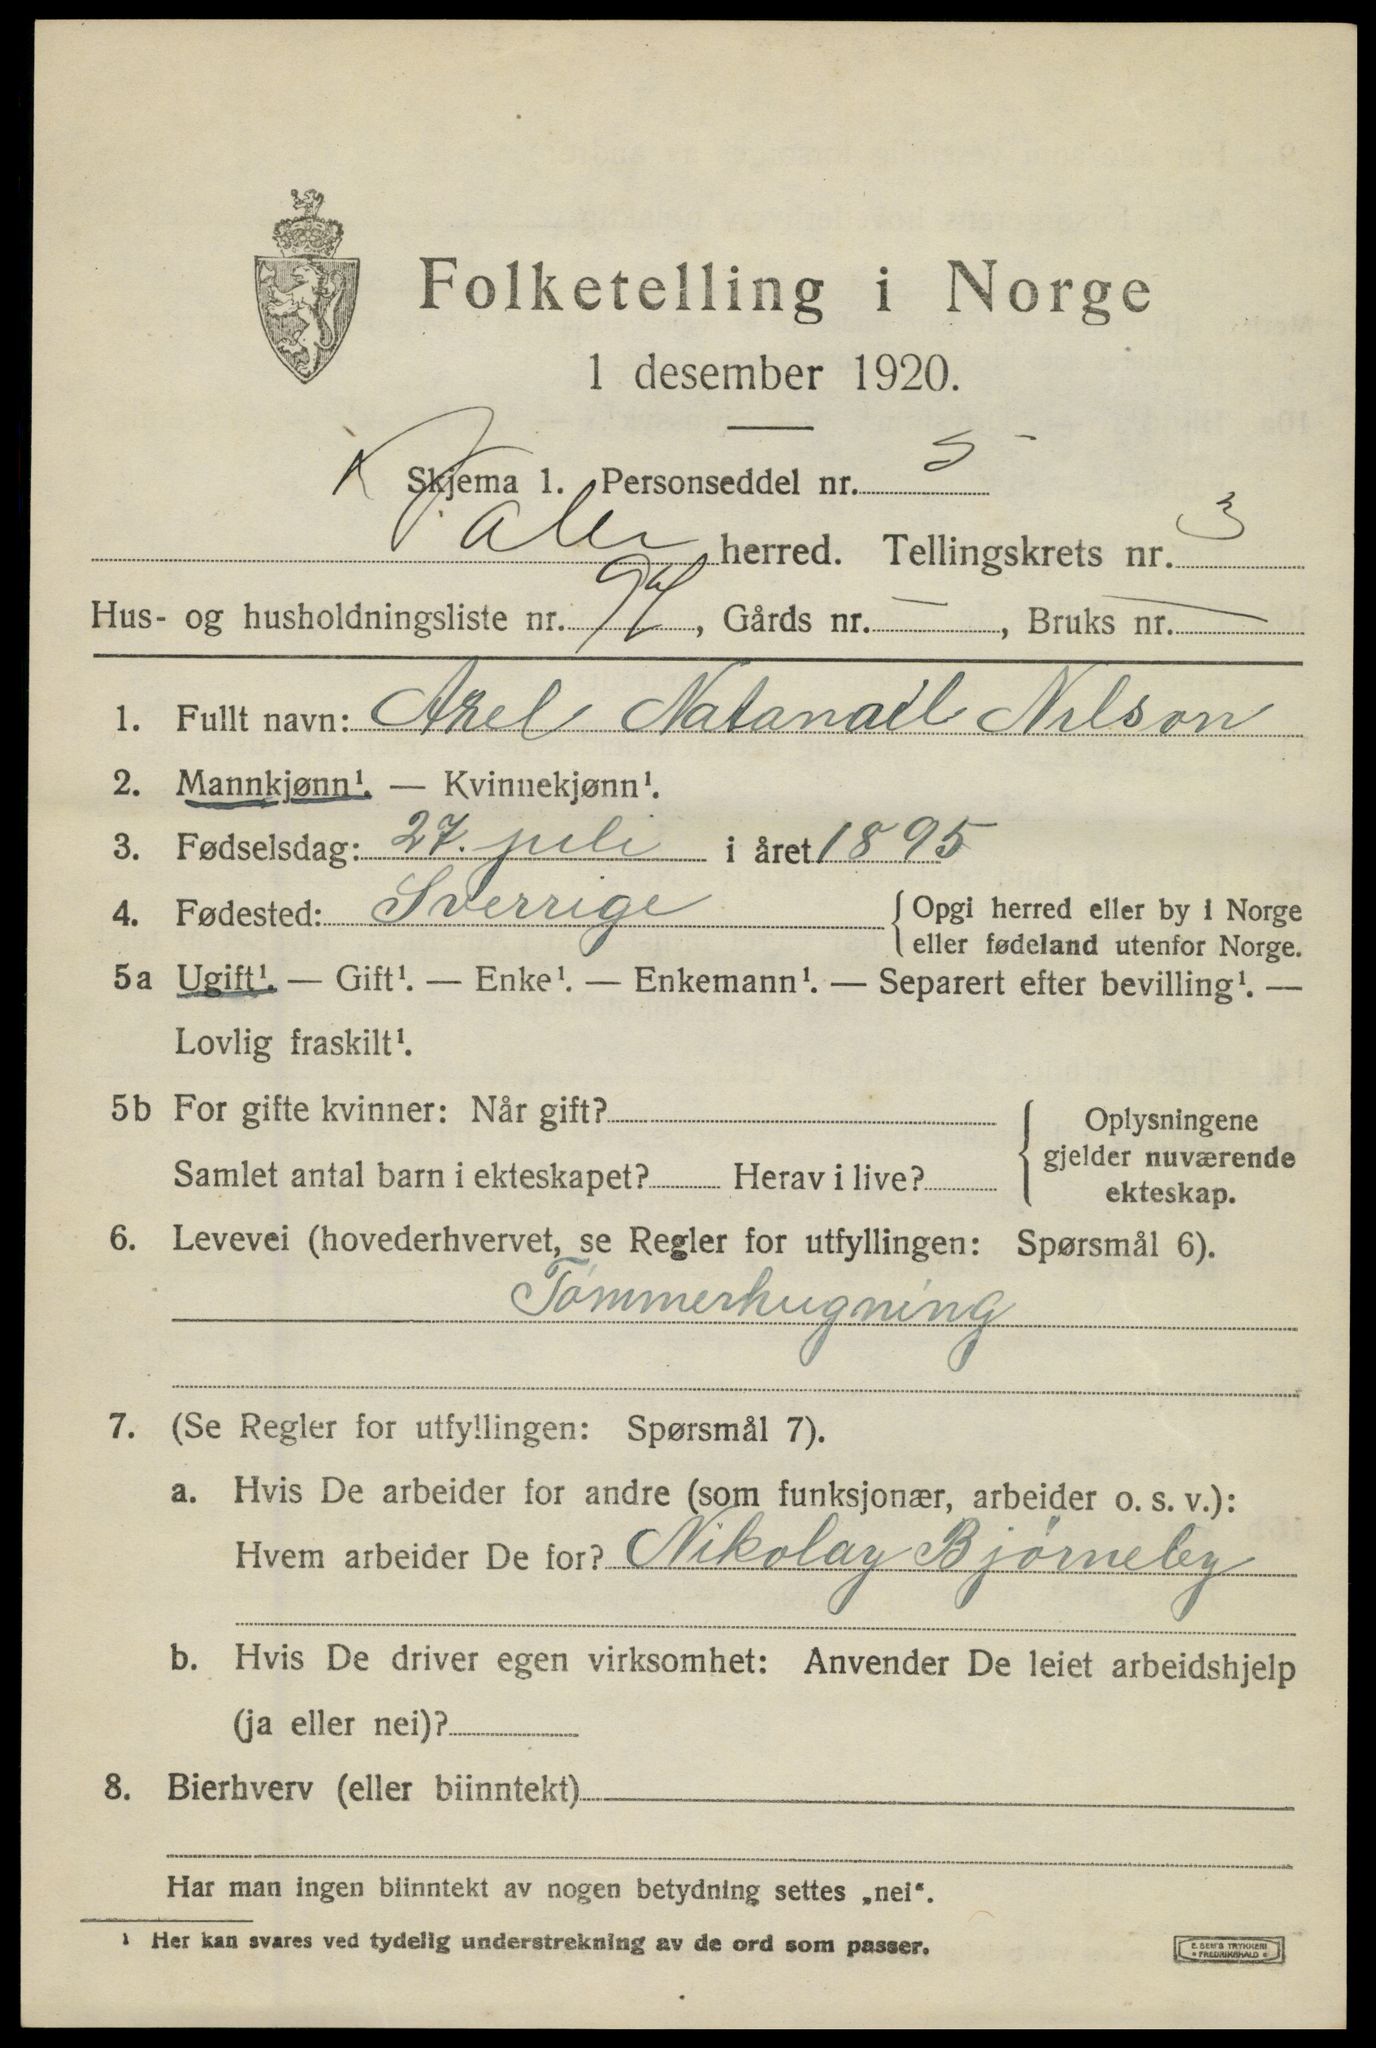 Folketelling i Norge
1 desember 1920.
Skjema 1. Personseddel nr. 5
Våler herred. Tellingskrets nr. 3
Hus- og husholdningsliste nr. , Gårds nr. — , Bruks nr. —
1. Fullt navn: Axel Natanaël Nilson
2. Mannkjønn¹. — Kvinnekjønn¹.
3. Fødselsdag: 27. juli i året 1895
4. Fødested: Sverrige { Opgi herred eller by i Norge
eller fødeland utenfor Norge.
5a Ugift¹. — Gift¹. — Enke¹. — Enkemann¹. — Separert efter bevilling¹. —
Lovlig fraskilt¹.
5b For gifte kvinner: Når gift?
Samlet antal barn i ekteskapet? Herav i live?
{ Oplysningene
gjelder nuværende
ekteskap.
6. Levevei (hovederhvervet, se Regler for utfyllingen: Spørsmål 6).
Tømmerhugning
7. (Se Regler for utfyllingen: Spørsmål 7).
a. Hvis De arbeider for andre (som funksjonær, arbeider o. s. v.):
Hvem arbeider De for? Nikolay Bjørneby
b. Hvis De driver egen virksomhet: Anvender De leiet arbeidshjelp
(ja eller nei)?
8. Bierhverv (eller biinntekt)
Har man ingen biinntekt av nogen betydning settes „nei“.
¹ Her kan svares ved tydelig understrekning av de ord som passer.
E. SEM'S TRYKKERI
• FREDRIKSHALD •